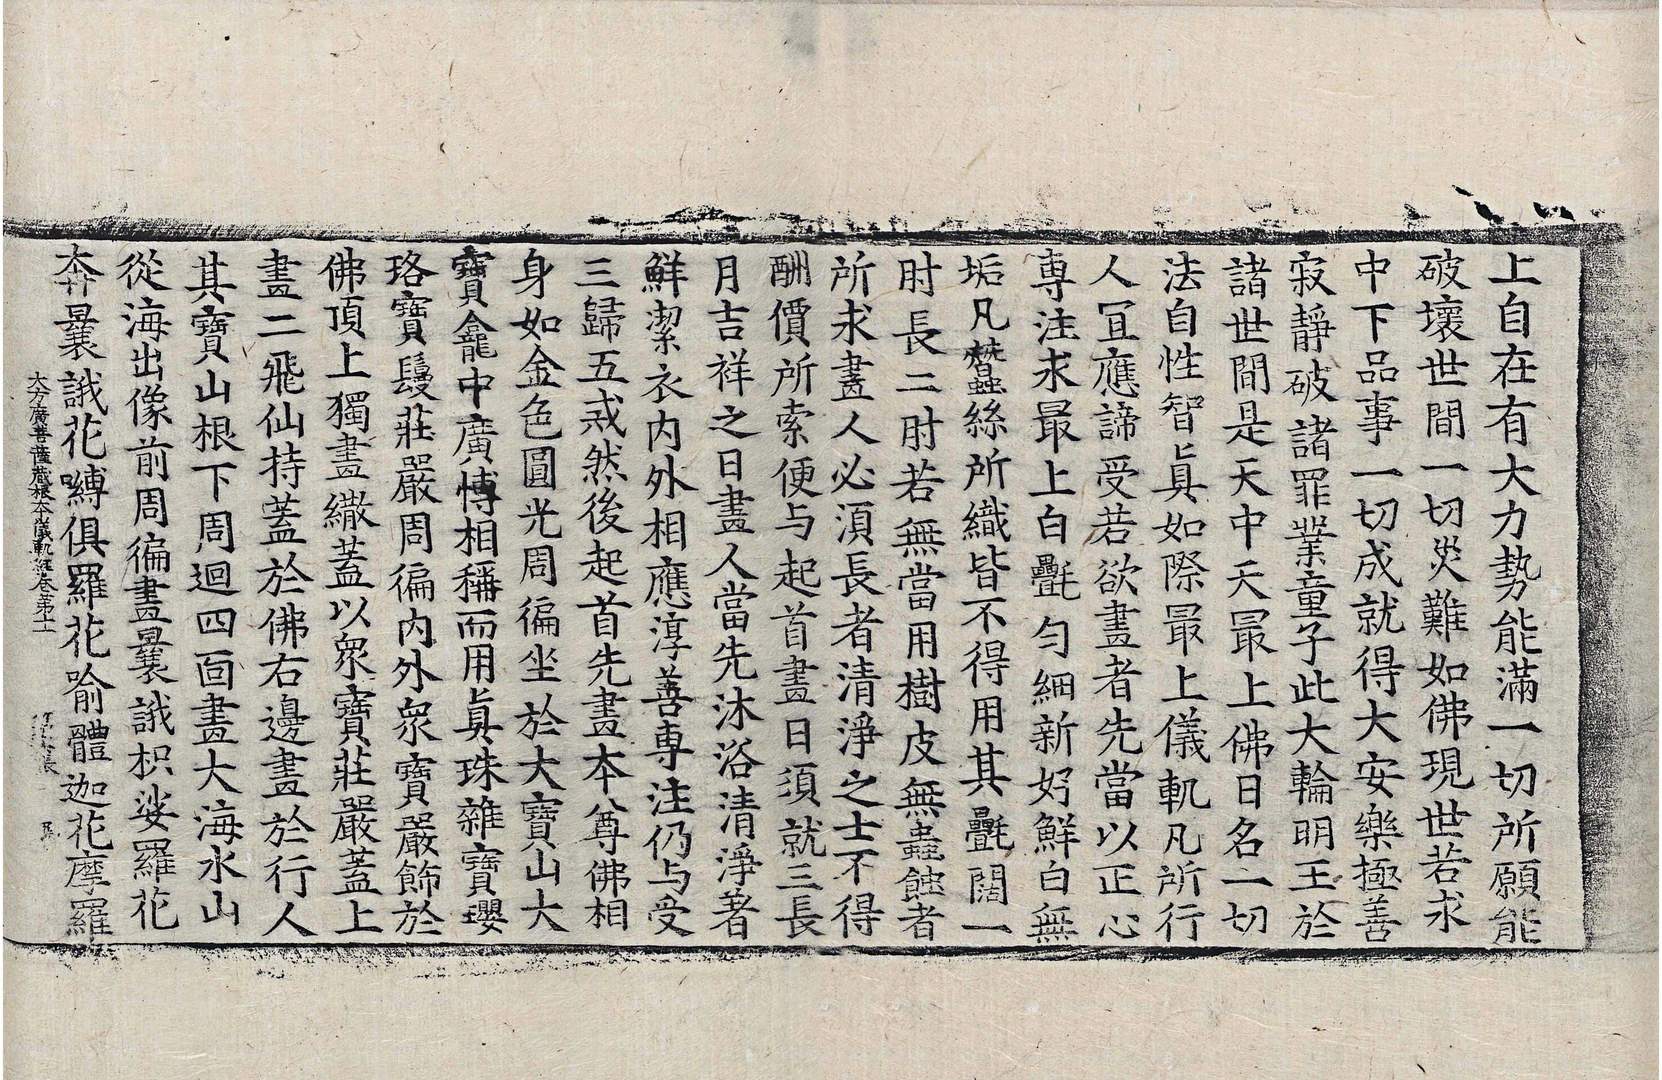 上自在有大力勢能滿一切所願能
破壞世間一切災難如佛現世若求
中下品事一切成就得大安樂極善
寂靜破諸罪業童子此大輪明王於
諸世間是天中天最上佛日名一切
法自性智真如際最上儀軌凡所行
人冝應諦受若欲畫者先當以正心
専注求最上白㲲勻細新好鮮白無
垢凡蠶絲所織皆不得用其㲲闊一
肘長二肘若無當用樹皮無蟲蝕者
所求畫人必須長者清淨之士不得
酬價所索便与起首畫日須就三長
月吉祥之日畫人當先沐浴清淨著
鮮潔衣内外相應淳善専注仍与受
三歸五戒然後起首先畫本尊佛相
身如金色圓光周徧坐於大寶山大
寶龕中廣博相稱而用真珠雜寶瓔
珞寶鬘莊嚴周徧内外衆寶嚴飾於
佛頂上獨畫繖蓋以衆寶莊嚴蓋上
畫二飛仙持蓋於佛右邊畫於行人
其寶山根下周迴四面畫大海水山
從海出像前周徧畫曩誐枳娑羅花
奔曩誐花嚩俱羅花喻體迦花摩羅
大方廣菩薩藏根本儀軌經卷第十一